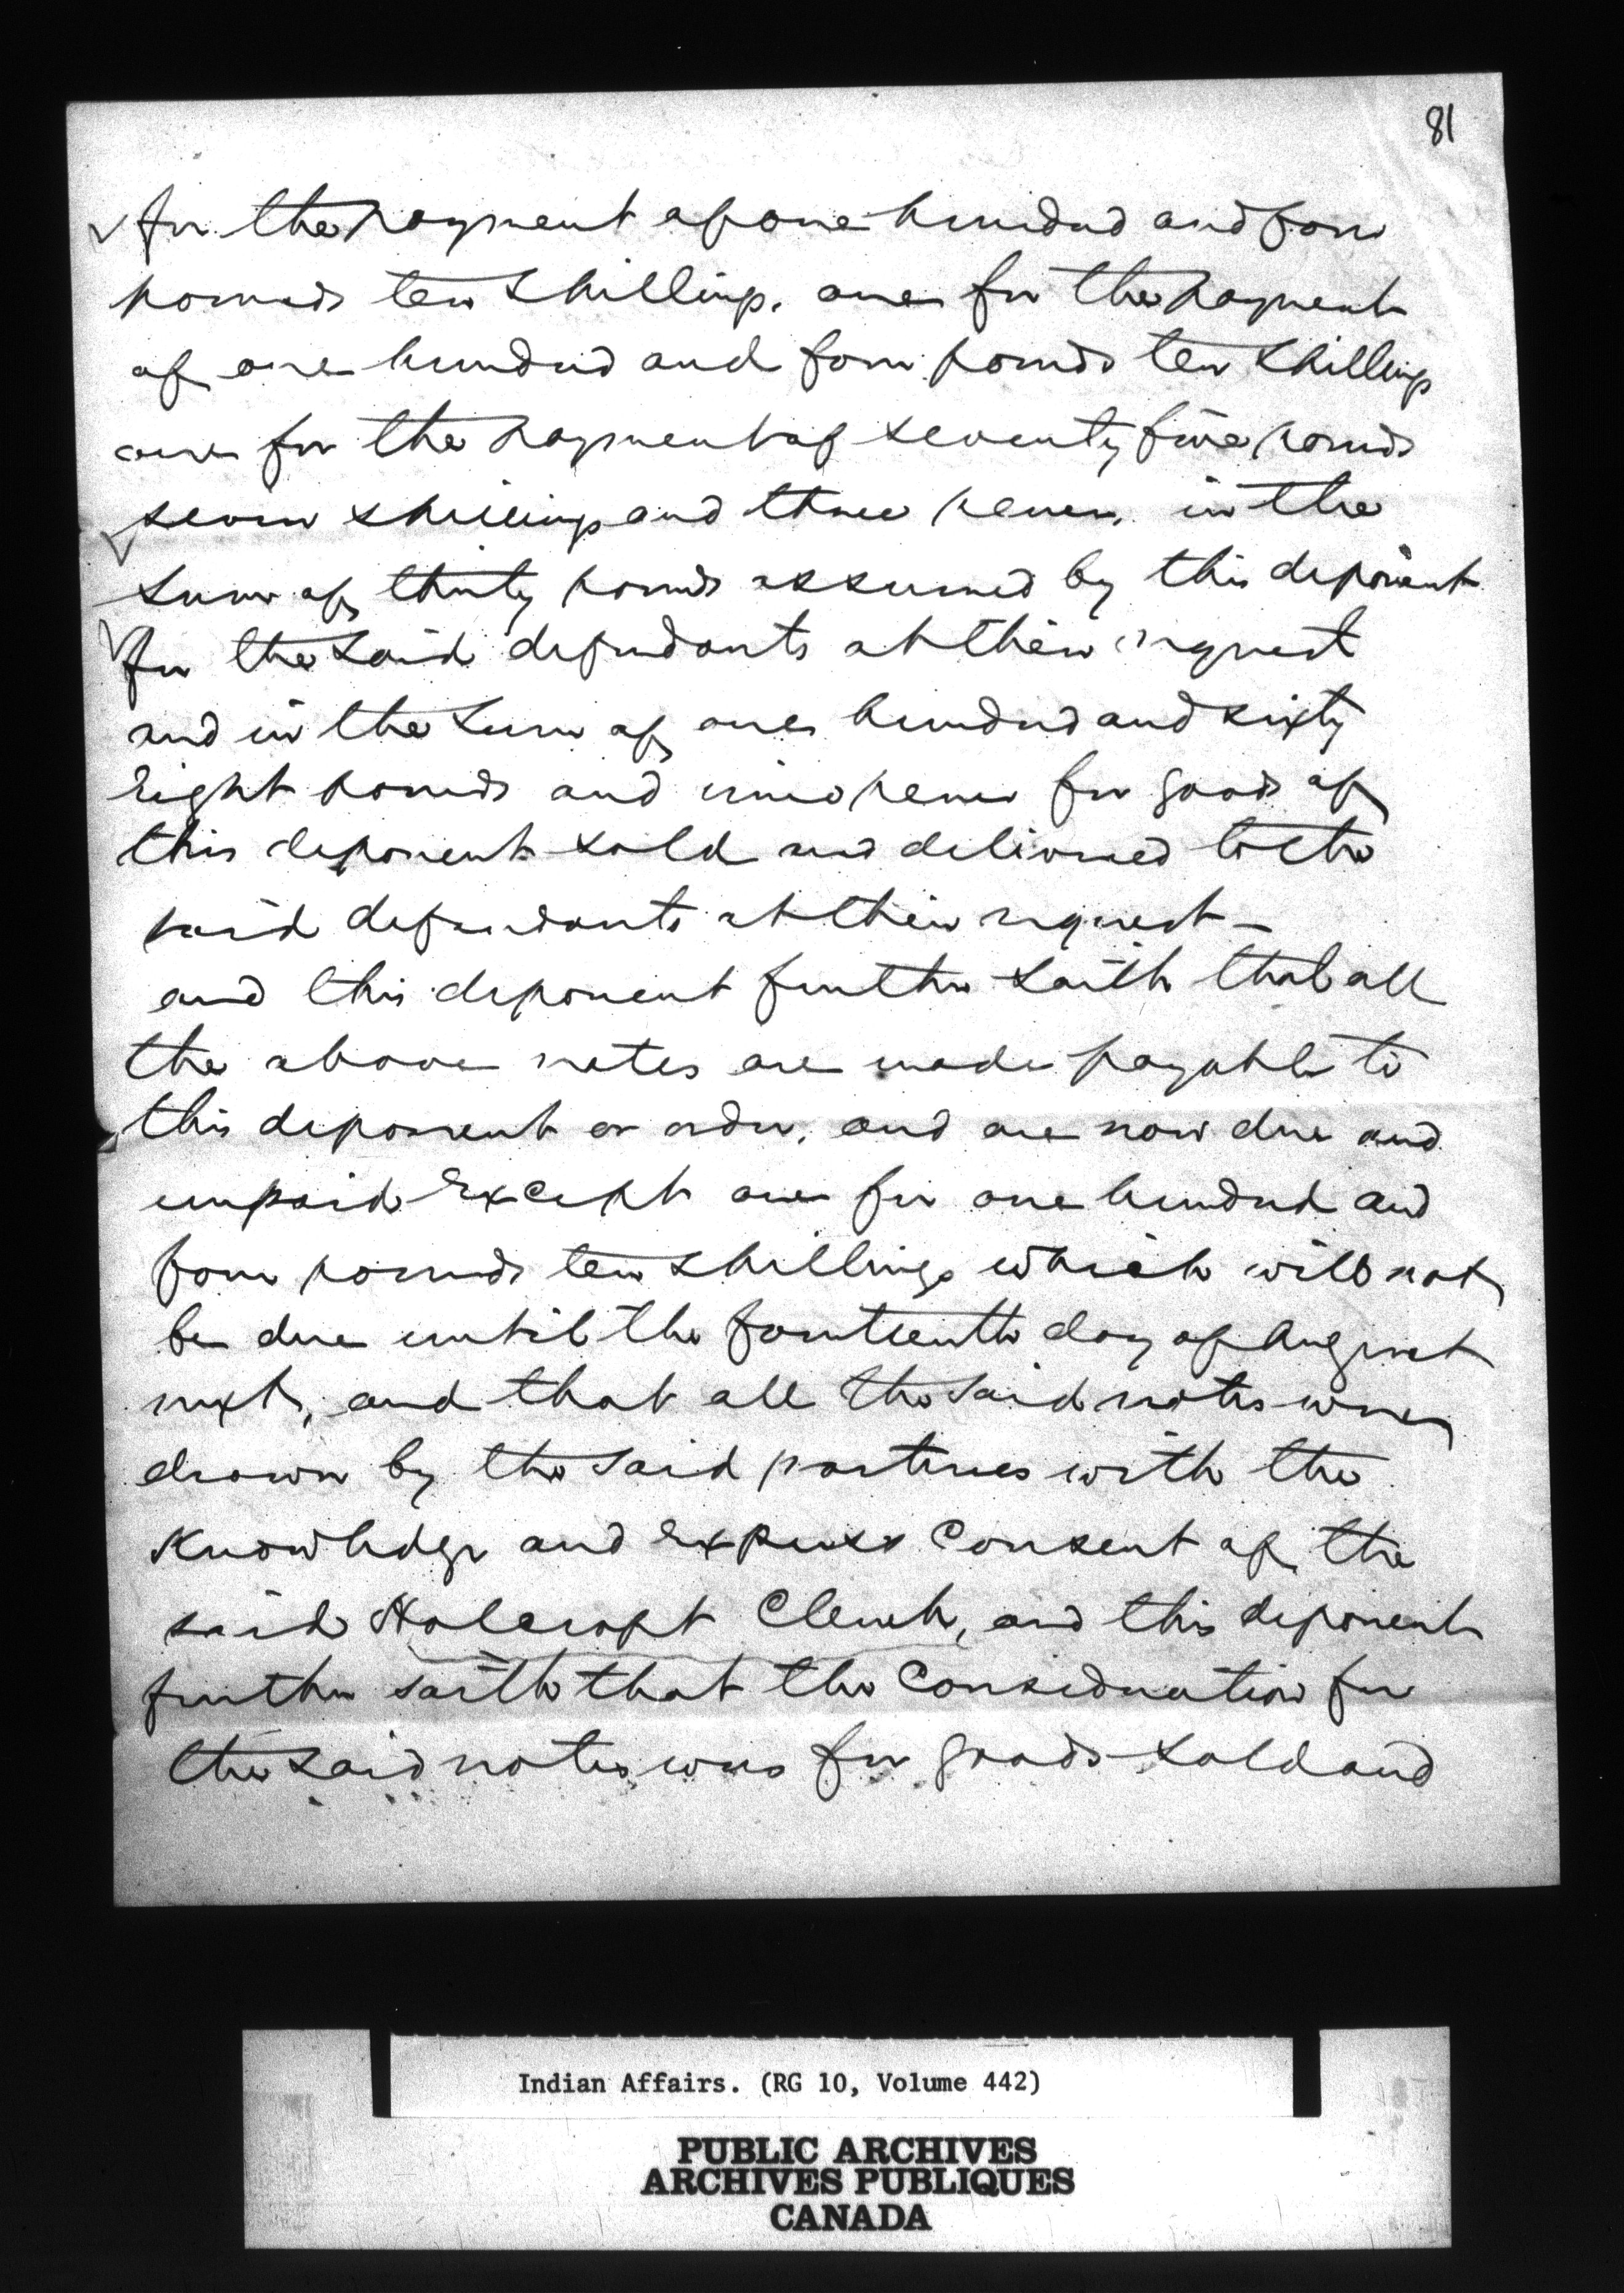 81
for the payment of one hundred and four
pounds ten shillings. one for the payment
of one hundred and four pounds ten shillings
one for the payment of seventy five pounds
seven shillings and three pence. in the
sum of thirty pounds assumed by this deponent
for the said defendants at their request
and in the sum of one hundred and sixty
eight pounds and nine pence for goods of
this deponent sold and delivered to the
said defendants at their request –
and this deponent further saith that all
the above notes are made payable to
this deponent or order, and are now due and
unpaid except one for one hundred and
four pounds ten shillings which will not
be due until the fourteenth day of August
next, and that all the said notes were
drawn by the said partners with the
knowledge and express consent of the
said Holcroft Clench, and this deponent
further saith that the consideration for
the said notes was for goods sold and
Indian Affairs. (RG 10, Volume 442)
PUBLIC ARCHIVES
ARCHIVES PUBLIQUES
CANADA